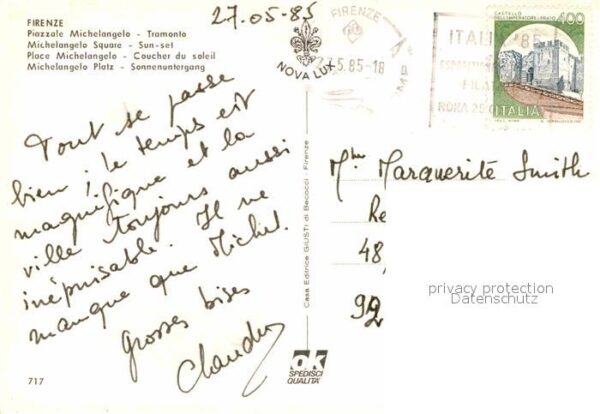 27.05-85
FIRENZE
Piazzale Michelangelo - Tramonto
Michelangelo Square - Sun-set
Place Michelangelo - Coucher du soleil
Michelangelo Platz - Sonnenuntergang
NOVA LUX
FIRENZE
5.85-18
ITALIA '85
ROMA 25
CASTELLO
DELL'IMPERATORE - PRATO
400
ITALIA
Tout se passe
bien ; le temps est
magnifique et la
ville toujours aussi
inépuisable. Il ne
manque que Michel.
Grosses bises
Mme Marguerite Smith
Re
48,
92
privacy protection
Datenschutz
Casa Editrice GIUSTI di Becocci - Firenze
717
OK
SPEDISCI
QUALITA'